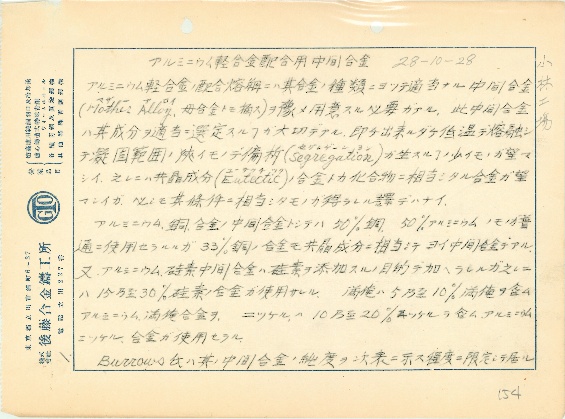 アルミニウム軽合金配合用中間合金 28-10-28
アルミニウム軽合金ノ配合熔解ニハ其合金ノ種類ニヨツテ適当ナル中間合金
(Mother Alloy, 母合金トモ称ス)ヲ豫メ用意スル必要ガアル。此中間合金
ハ其成分ヲ適当ニ選定スル事ガ大切デアル。即チ出来ルダケ低温デ熔融シ
テ凝固範囲ノ狭イモノデ偏析(Segregation)ガ生スル事ノ少イモノガ望マ
シイ。之レニハ共晶成分(Eutectic)ノ合金トカ化合物ニ相当シタル合金ガ望
マシイガ、必シモ其條件ニ相当シタモノガ得ラレル譯デハナイ。
アルミニウム、銅、合金ノ中間合金トシテハ 50%銅、50%アルミニウムノモノガ普
通ニ使用セラルルガ 33%銅ノ合金モ共晶成分ニ相当シテヨイ中間合金デアル。
又アルミニウム、硅素中間合金ハ硅素ヲ添加スル目的デ加ヘラレルガ之レニ
ハ 15乃至30%硅素ノ合金ガ使用サレル。 満俺ハ5乃至10%満俺ヲ含ム
アルミニウム満俺合金ヲ、ニツケルハ10乃至20%ニツケルヲ含ムアルミニウム
ニツケル、合金ガ使用セラル。
Burrows氏ハ其ノ中間合金ノ純度ヲ次表ニ示ス程度ニ限定シテ居ル
小林工場
株式会社 後藤合金鑄工所
154